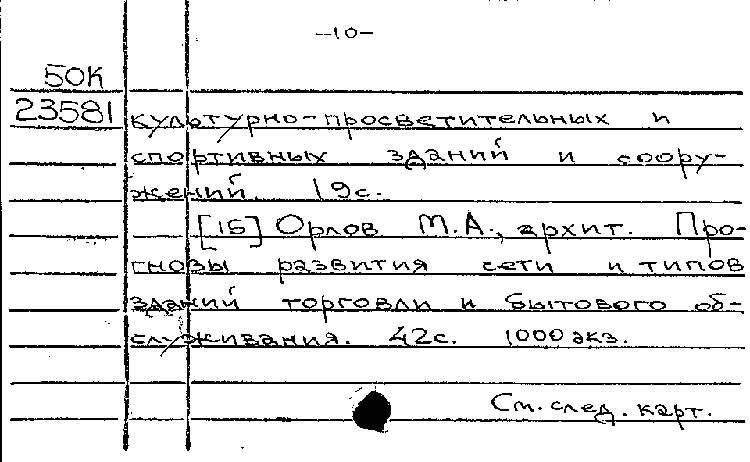 -10-
50К
23581 культурно-просветительных и
спортивных зданий и соору-
жений. 19с.
[15] Орлов М.А., архит. Про-
гнозы развития сети и типов
зданий торговли и бытового об-
служивания. 42с. 1000 экз.
См. след. карт.